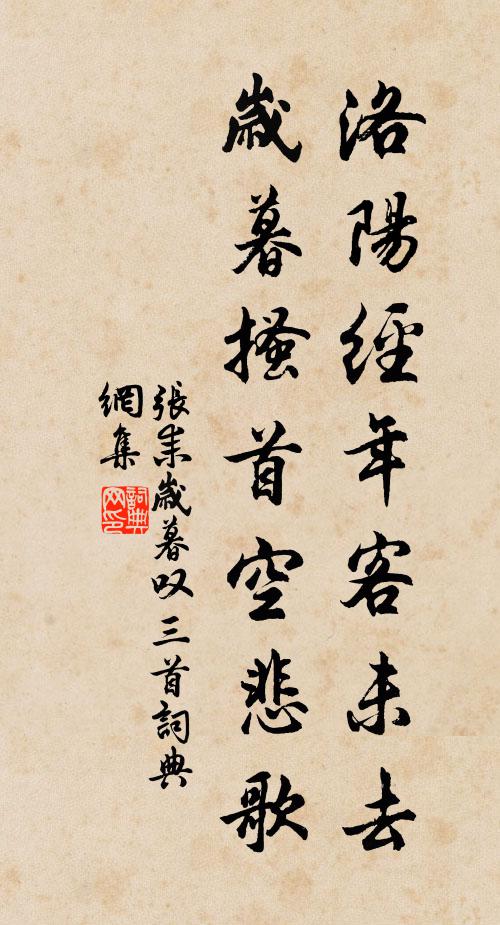 洛陽經年客未去
歲暮搔首空悲歌
張耒歲暮叹三首詞典
網集
詞典
网印